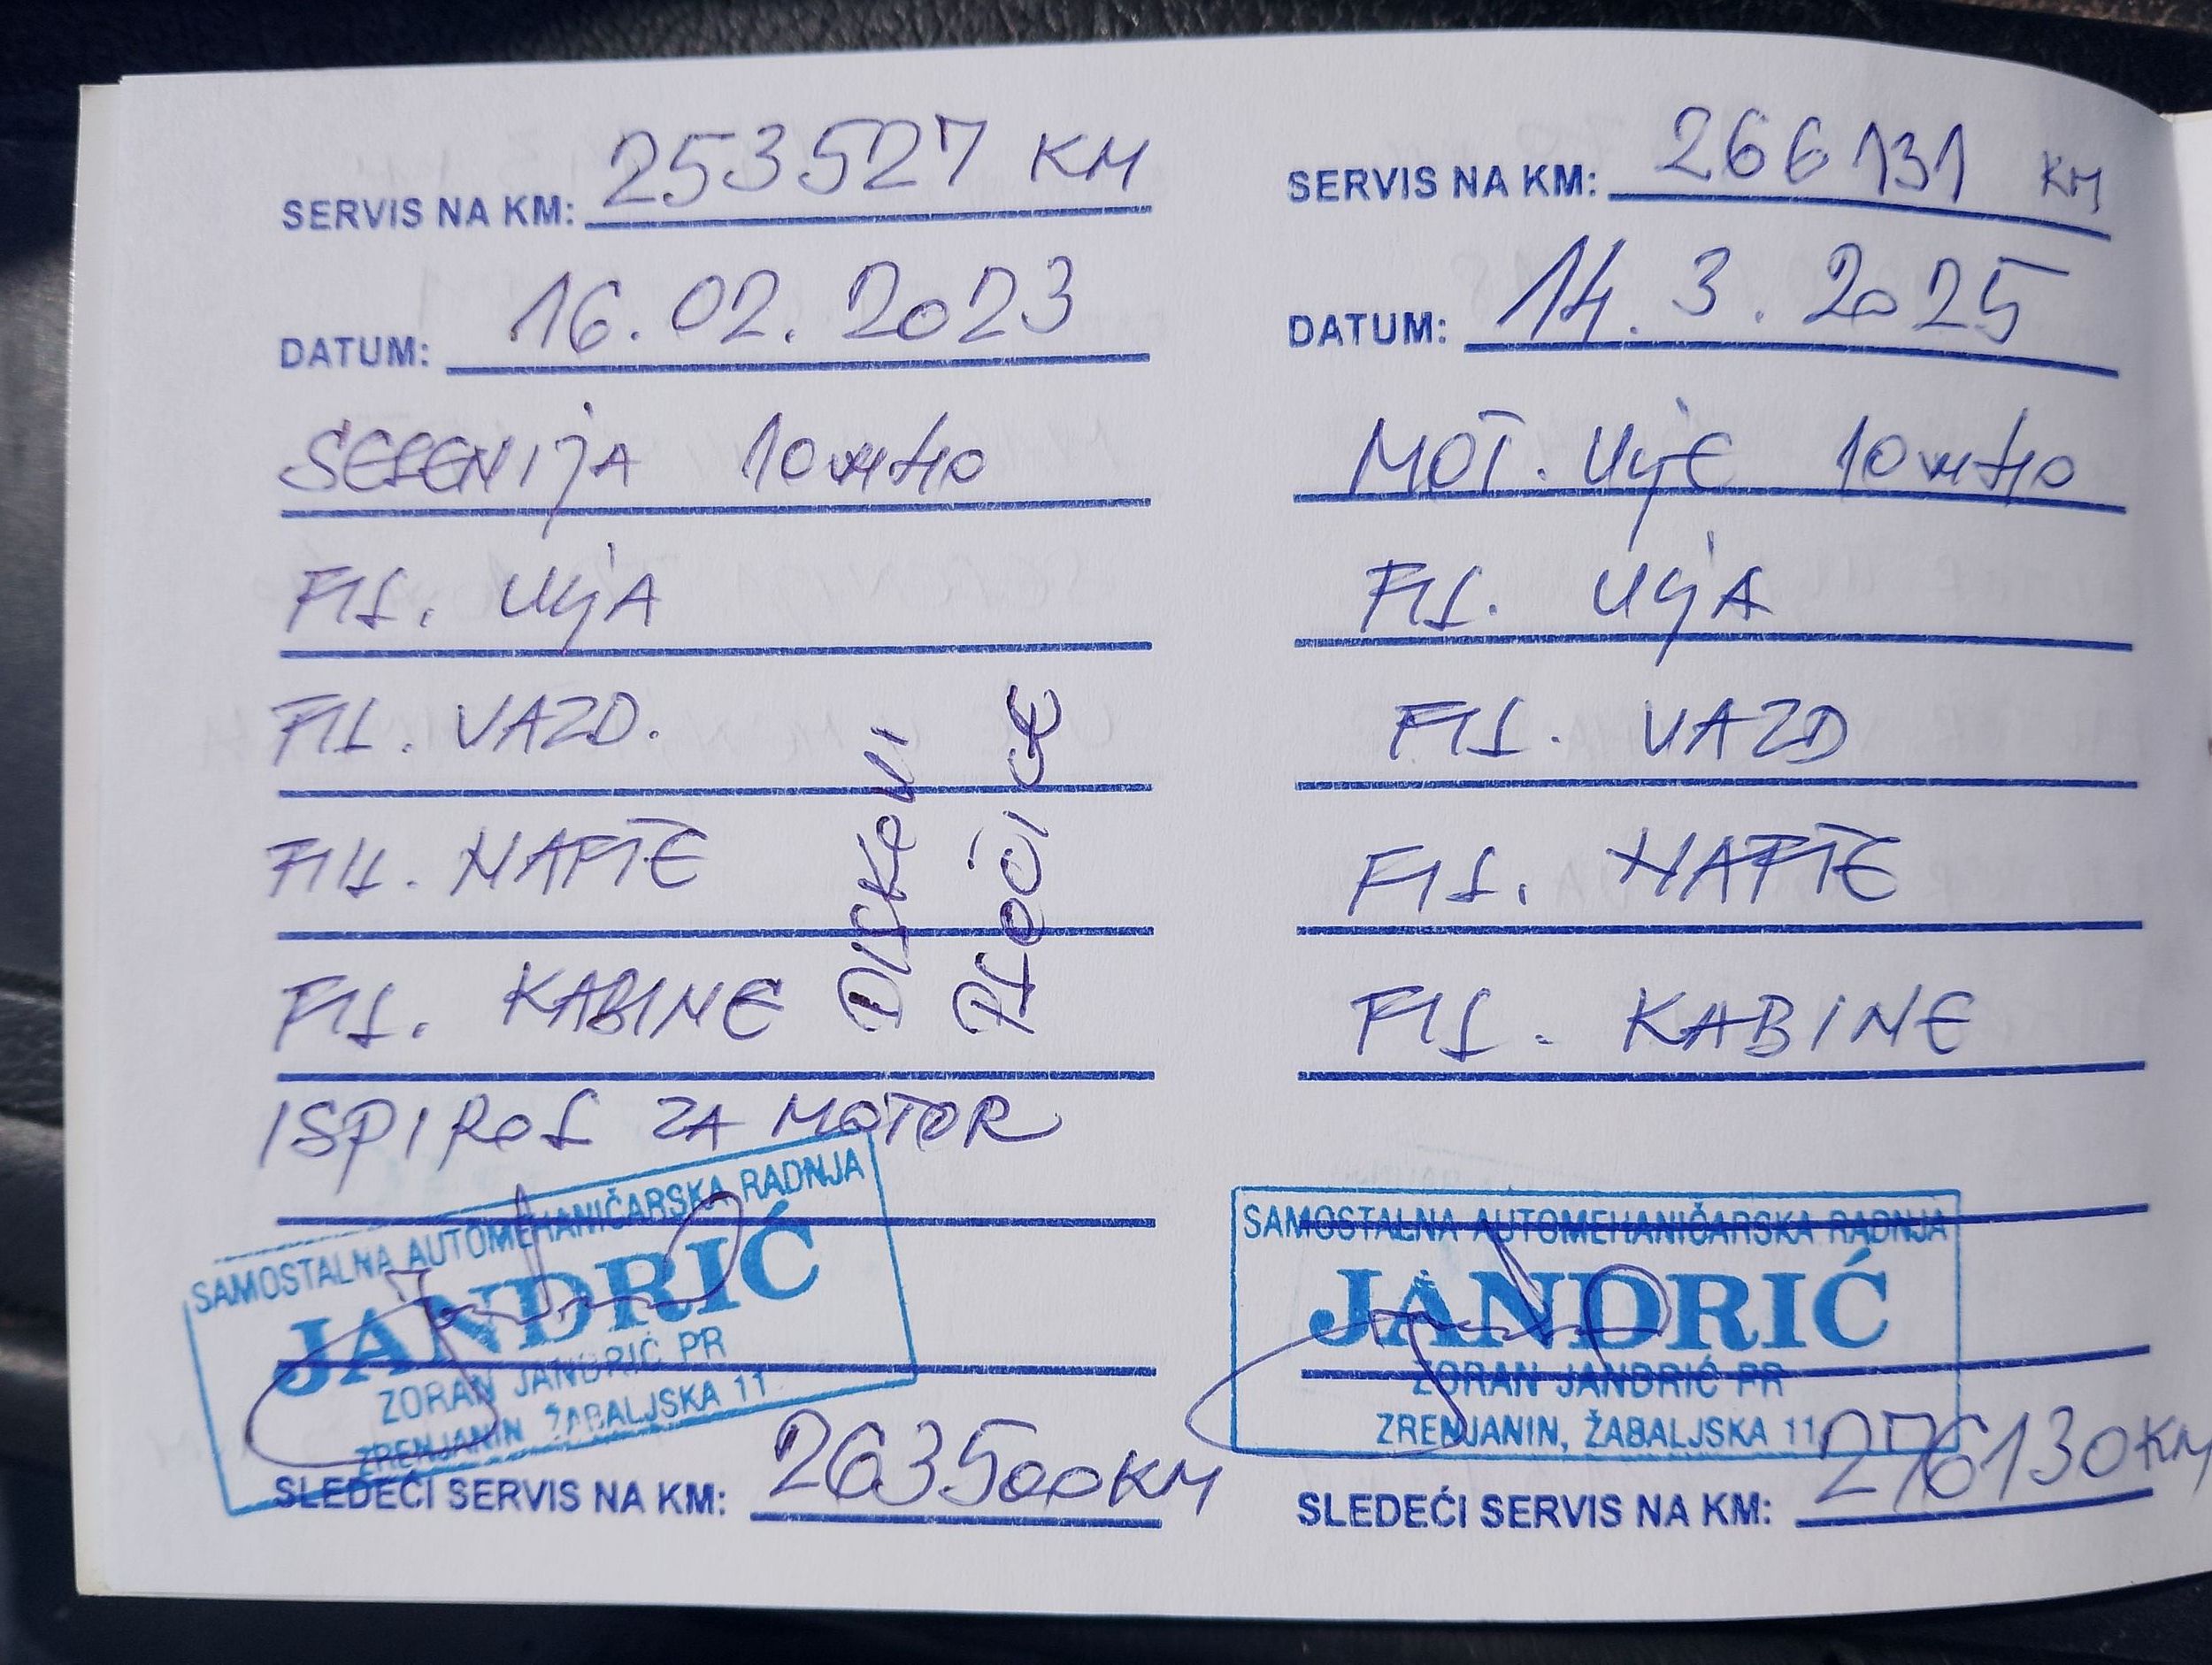 SERVIS NA KM: 253527 KM
DATUM: 16.02.2023
SELENIJA 10W40
FIL. ULJA
FIL. VAZD.
FIL. NAFTE
FIL. KABINE
DISKOVI
PLOČICE
ISPIROL ZA MOTOR
SAMOSTALNA AUTOMEHANIČARSKA RADNJA
JANDRIĆ
ZORAN JANDRIĆ PR
ZRENJANIN, ŽABALJSKA 11
SLEDEĆI SERVIS NA KM: 263500KM
SERVIS NA KM: 266131 KM
DATUM: 14.3.2025
MOT. ULJE 10W40
FIL. ULJA
FIL. VAZD
FIL. NAFTE
FIL. KABINE
SAMOSTALNA AUTOMEHANIČARSKA RADNJA
JANDRIĆ
ZORAN JANDRIĆ PR
ZRENJANIN, ŽABALJSKA 11
SLEDEĆI SERVIS NA KM: 276130KM